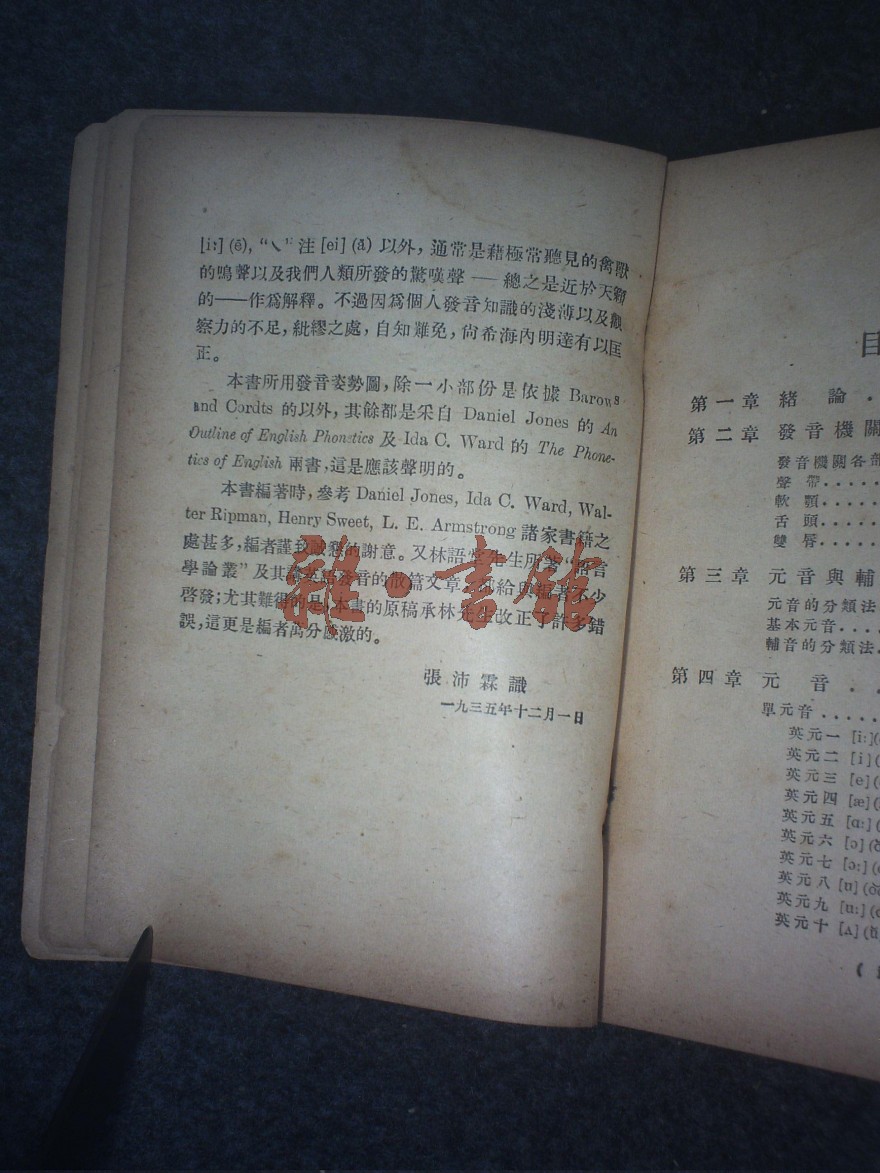 [iː] (ē), “ㄟ” 注 [ei] (ā) 以外, 通常是藉極常聽見的禽獸
的鳴聲以及我們人類所發的驚嘆聲 —— 總之是近於天籟
的——作爲解釋。不過因爲個人發音知識的淺薄以及觀
察力的不足, 紕繆之處, 自知難免, 尙希海內明達有以匡
正。
本書所用發音姿勢圖, 除一小部份是依據 Barows
and Cordts 的以外, 其餘都是采自 Daniel Jones 的 An
Outline of English Phonetics 及 Ida C. Ward 的 The Phone-
tics of English 兩書, 這是應該聲明的。
本書編著時, 參考 Daniel Jones, Ida C. Ward, Wal-
ter Ripman, Henry Sweet, L. E. Armstrong 諸家書籍之
處甚多, 編者謹致誠懇的謝意。又林語堂先生所著“語言
學論叢”及其論英語發音的散篇文章, 都給與編者不少
啓發; 尤其難得的是, 本書的原稿承林先生改正了許多錯
誤, 這更是編者萬分感激的。
張沛霖識
一九三五年十二月一日
雜·書館
目
第一章 緖論 .
第二章 發音機關
發音機關各部
聲帶.....
軟顎.....
舌頭.....
雙唇.....
第三章 元音與輔
元音的分類法
基本元音....
輔音的分類法.
第四章 元音 . .
單元音 .....
英元一 [iː]
英元二 [i]
英元三 [e]
英元四 [æ]
英元五 [ɑː]
英元六 [ɔ]
英元七 [ɔː]
英元八 [u]
英元九 [uː]
英元十 [ʌ]